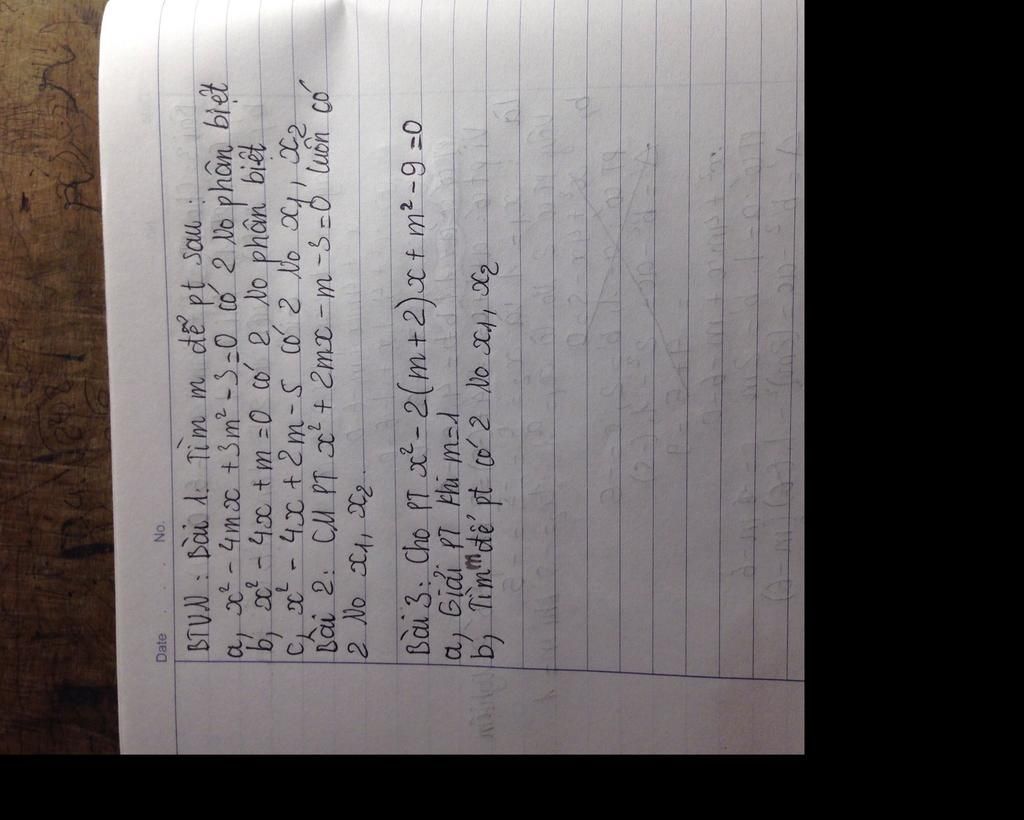 Date . . . No.
BTVN: Bài 1: Tìm m để pt sau:
a, x² - 4mx + 3m² - 3 = 0 có 2 No phân biệt
b, x² - 4x + m = 0 có 2 No phân biệt
c, x² - 4x + 2m - 5 có 2 No x₁, x₂
Bài 2: CM PT x² + 2mx - m - 3 = 0 luôn có
2 No x₁, x₂
Bài 3: Cho PT x² - 2(m + 2)x + m² - 9 = 0
a, Giải PT khi m = 1
b, Tìm m để pt có 2 No x₁, x₂